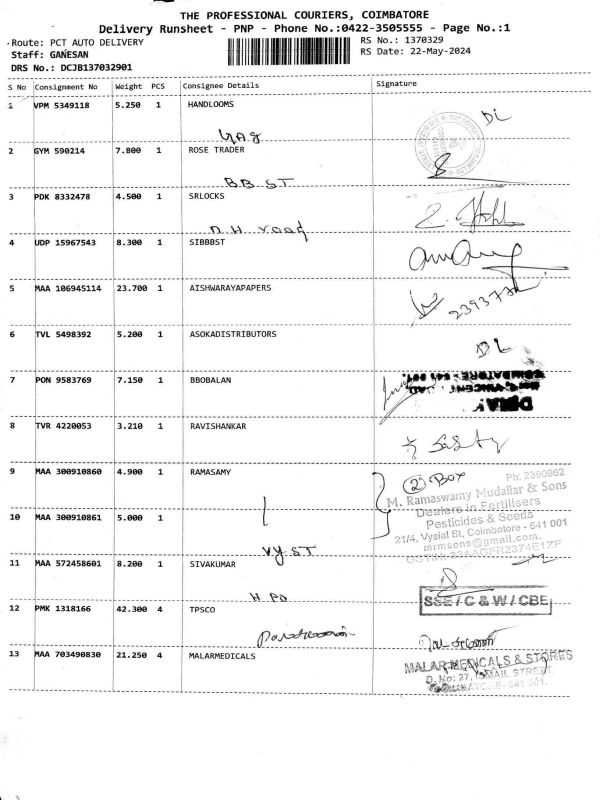 THE PROFESSIONAL COURIERS, COIMBATORE
Delivery Runsheet - PNP - Phone No.:0422-3505555 - Page No.:1
Route: PCT AUTO DELIVERY
RS No.: 1370329
Staff: GANESAN
RS Date: 22-May-2024
DRS No.: DCJB137032901
S No Consignment No Weight PCS Consignee Details Signature
1 VPM 5349118 5.250 1 HANDLOOMS
DL
2 GYM 590214 7.800 1 ROSE TRADER
BB ST
3 PDK 8332478 4.500 1 SRLOCKS
D.H. road
4 UDP 15967543 8.300 1 SIBBBST
5 MAA 106945114 23.700 1 AISHWARAYAPAPERS
6 TVL 5498392 5.200 1 ASOKADISTRIBUTORS
DL
7 PON 9583769 7.150 1 BBOBALAN
8 TVR 4220053 3.210 1 RAVISHANKAR
9 MAA 300910860 4.900 1 RAMASAMY
2 BOX
Ph: 2390962
M. Ramaswamy Mudaliar & Sons
Dealers in Fertilisers
Pesticides & Seeds
21/4, Vysial St, Coimbatore - 641 001
mrmsons@gmail.com.
10 MAA 300910861 5.000 1
VY ST
11 MAA 572458601 8.200 1 SIVAKUMAR
H.PO
SSE / C & W / CBE
12 PMK 1318166 42.300 4 TPSCO
13 MAA 703490830 21.250 4 MALARMEDICALS
MALAR MEDICALS & STORES
D. No: 27, ISMAIL STREET